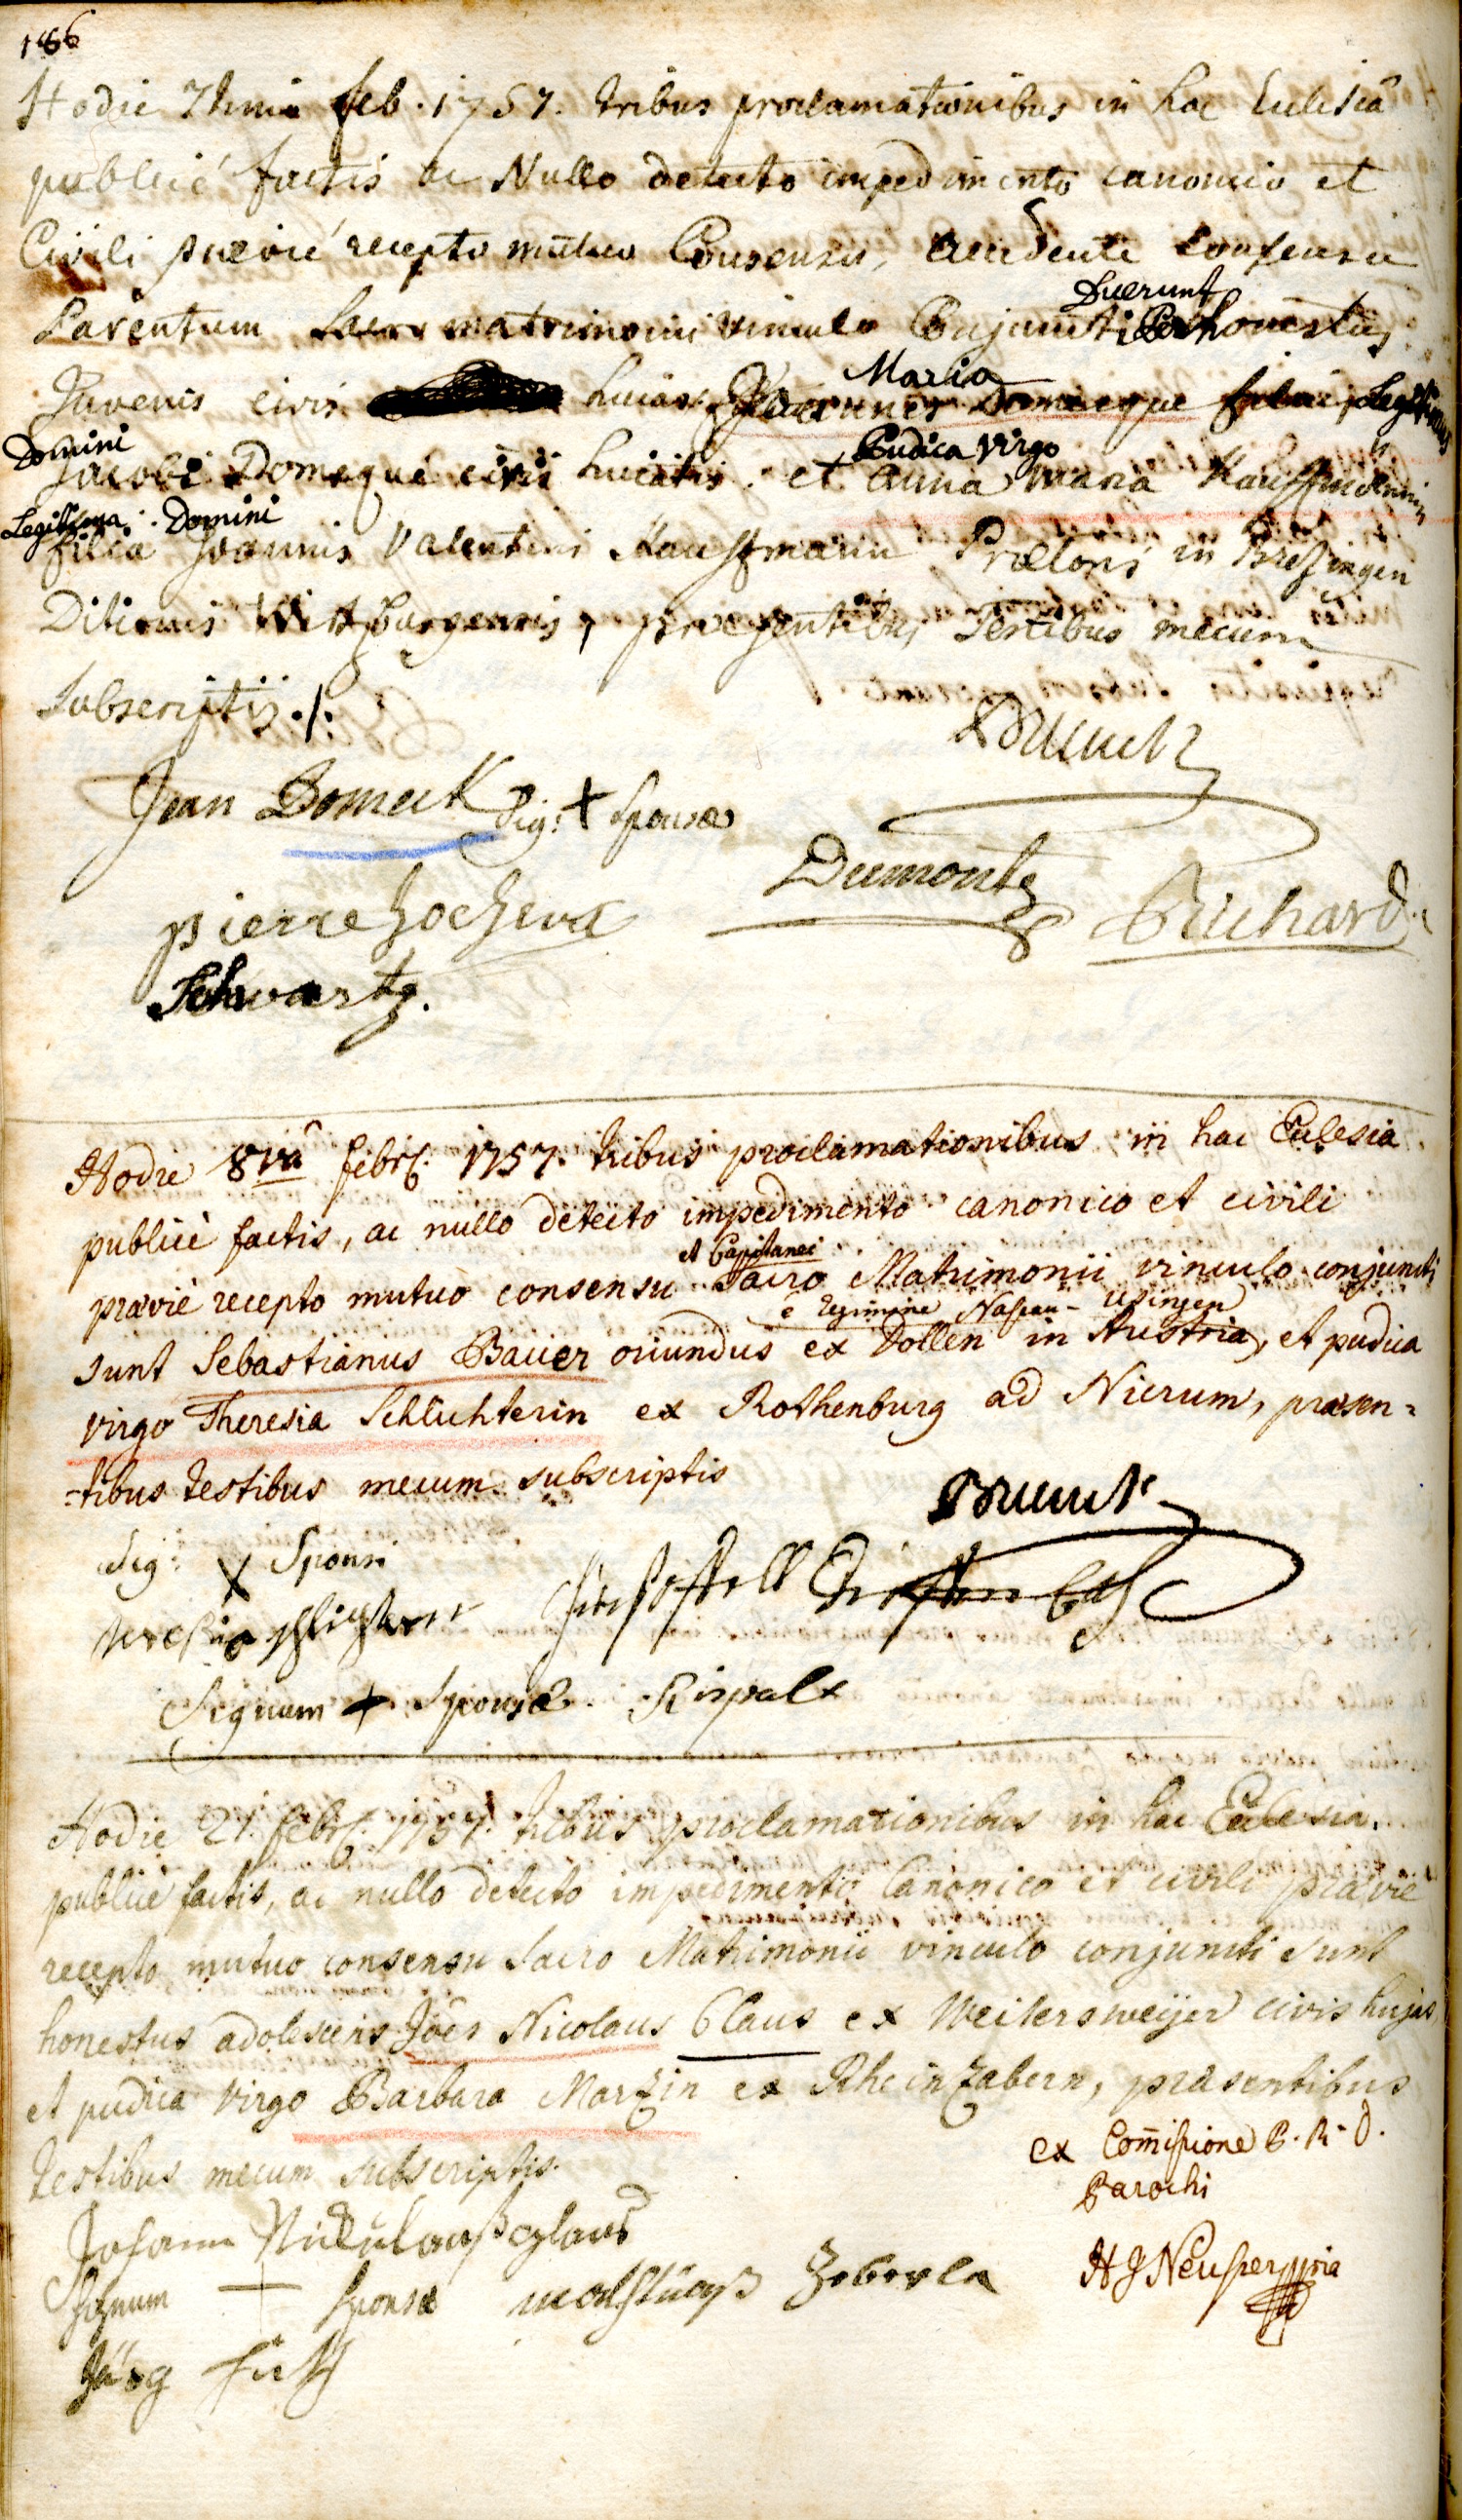 186
Hodie 7timâ feb. 1757. tribus proclamationibus in hac Ecclesiâ
publicé factis ac Nullo detecto impedimento canonico et
Civili prævié recepto mutuo Consensu, accedente Consensu
Parentum Sacro matrimonii vinculo Conjuncti fuerunt honestus
Juvenis civis hicias Joannes Maria Domeque filius Legitimus
Domini Jacobi Domequé civis huiatis. et Pudica Virgo anna maria Kauffmännin
Legitima filia Domini Joannis Valentini Kauffmann Prætoris in Bretzingen
Ditionis Wirtzburgensis, præsentibus Testibus mecum
Subscriptis ./:
Brunck
Jean Domeck Sig: + Sponsæ
Dumontz Richard
pierre
Schwartz.
Hodie 8vâ febr. 1757. tribus proclamationibus in hac Eclesia
publicè factis, ac nullo detecto impedimento canonico et civili
prævié recepto mutuo consensu et Capitanei Sacro Matrimonii vinculo conjuncti
sunt Sebastianus Bauer oriundus ex Dollen e regimine Nassau-Usingen in Austria, et pudica
virgo Theresia Schlichterin ex Rothenburg ad Nicrum, præsen=
=tibus testibus mecum subscriptis
Brunck
Sig: X Sponsi
Signum + Sponsæ. Rispalx
Hodie 21. febr. 1757. tribus proclamationibus in hac Ecclesia
publicè factis, ac nullo detecto impedimento Canonico et civili prævié
recepto mutuo consensu Sacro Matrimonii vinculo conjuncti sunt
honestus adolescens Jôes Nicolaus Claus ex Weitersweijer civis hujas
et pudica virgo Barbara Martzin ex Rheinzabern, præsentibus
testibus mecum subscriptis.
ex Com̄issione P. R. D.
Parochi
Johann Nickulauß claus
Signum + sponsæ
H J Neusper
Jörg